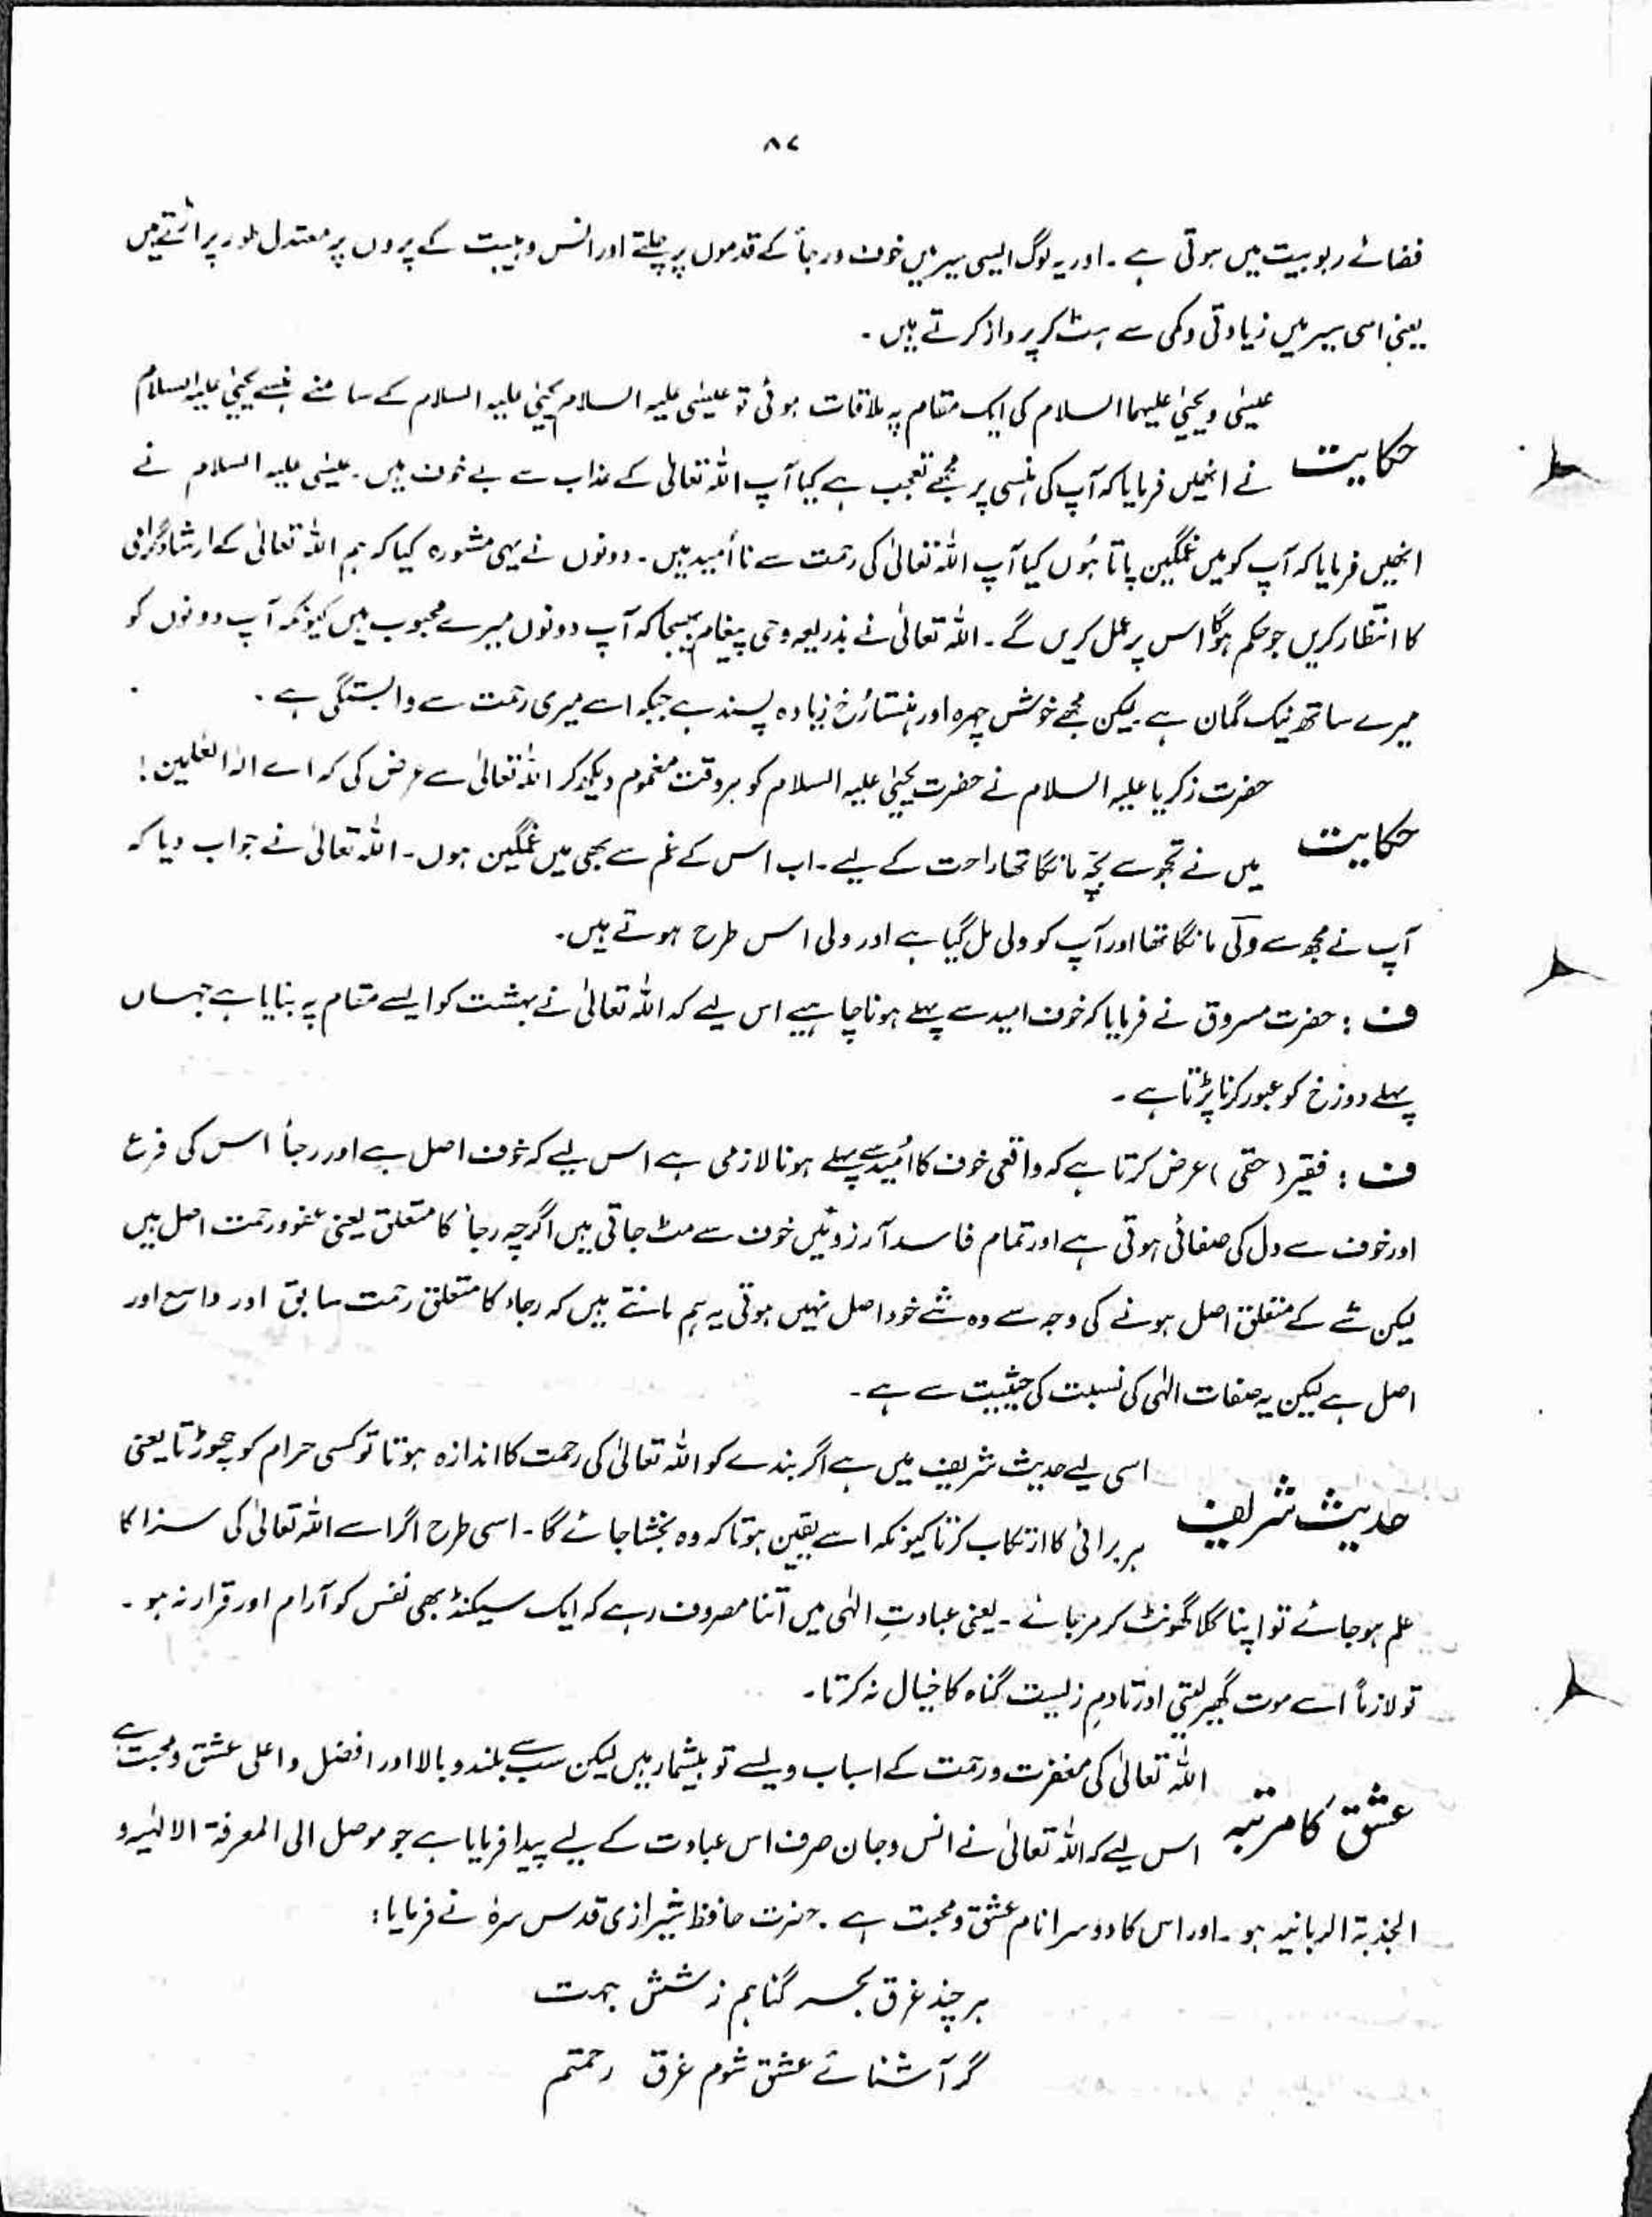 ۸۷
فضائے ربوبیت میں ہوتی ہے ۔ اور یہ لوگ ایسی سیر میں خوف و رجأ کے قدموں پر چلتے اور انس و ہیبت کے پروں پر معتدل طور پر اڑتے ہیں
یعنی اسی سیر میں زیادتی و کمی سے ہٹ کر پرواز کرتے ہیں ۔
حکایت
عیسٰی و یحیٰی علیہما السلام کی ایک مقام پہ ملاقات ہوئی تو عیسٰی علیہ السلام یحیٰی علیہ السلام کے سامنے ہنسے یحیٰی علیہ السلام
نے انھیں فرمایا کہ آپ کی ہنسی پر مجھے تعجب ہے کیا آپ اللہ تعالٰی کے عذاب سے بے خوف ہیں ۔ عیسٰی علیہ السلام نے
انھیں فرمایا کہ آپ کو میں غمگین پاتا ہُوں کیا آپ اللہ تعالیٰ کی رحمت سے نا اُمید ہیں ۔ دونوں نے یہی مشورہ کیا کہ ہم اللہ تعالیٰ کے ارشاد گرامی
کا انتظار کریں جو حکم ہوگا اس پر عمل کریں گے ۔ اللہ تعالیٰ نے بذریعہ وحی پیغام بھیجا کہ آپ دونوں میرے محبوب ہیں کیونکہ آپ دونوں کو
میرے ساتھ نیک گمان ہے لیکن مجھے خوش چہرہ اور ہنستا رُخ زیادہ پسند ہے جبکہ اسے میری رحمت سے وابستگی ہے ۔
حکایت
حضرت زکریا علیہ السلام نے حضرت یحیٰی علیہ السلام کو ہر وقت مغموم دیکھ کر اللہ تعالیٰ سے عرض کی کہ اے الٰہ العٰلمین !
میں نے تجھ سے بچّہ مانگا تھا راحت کے لیے ۔ اب اس کے غم سے بھی میں غمگین ہوں ۔ اللہ تعالیٰ نے جواب دیا کہ
آپ نے مجھ سے ولی مانگا تھا اور آپ کو ولی مل گیا ہے اور ولی اس طرح ہوتے ہیں ۔
ف : حضرت مسروق نے فرمایا کہ خوف امید سے پہلے ہونا چاہیے اس لیے کہ اللہ تعالیٰ نے بہشت کو ایسے مقام پہ بنایا ہے جہاں
پہلے دوزخ کو عبور کرنا پڑتا ہے ۔
ف : فقیر ( حقی ) عرض کرتا ہے کہ واقعی خوف کا اُمید سے پہلے ہونا لازمی ہے اس لیے کہ خوف اصل ہے اور رجأ اس کی فرع
اور خوف سے دل کی صفائی ہوتی ہے اور تمام فاسد آرزوئیں خوف سے مٹ جاتی ہیں اگرچہ رجأ کا متعلق یعنی عفو و رحمت اصل ہیں
لیکن شے کے متعلق اصل ہونے کی وجہ سے وہ شے خود اصل نہیں ہوتی یہ ہم مانتے ہیں کہ رجاء کا متعلق رحمت سابق اور واسع اور
اصل ہے لیکن یہ صفات الٰہی کی نسبت کی حیثیت سے ہے ۔
حدیث شریف
اسی لیے حدیث شریف میں ہے اگر بندے کو اللہ تعالیٰ کی رحمت کا اندازہ ہوتا تو کسی حرام کو چھوڑتا یعنی
ہر برائی کا ارتکاب کرتا کیونکہ اسے یقین ہوتا کہ وہ بخشا جائے گا ۔ اسی طرح اگر اسے اللہ تعالیٰ کی سزا کا
علم ہو جائے تو اپنا گلا گھونٹ کر مر جائے ۔ یعنی عبادتِ الٰہی میں اتنا مصروف رہے کہ ایک سیکنڈ بھی نفس کو آرام اور قرار نہ ہو ۔
تو لازماً اسے موت گھیر لیتی اور تادمِ زلیست گناہ کا خیال نہ کرتا ۔
عشق کا مرتبہ
اللہ تعالیٰ کی مغفرت و رحمت کے اسباب ویسے تو بیشمار ہیں لیکن سب سے بلند و بالا اور افضل و اعلی عشق و محبت ہے
اس لیے کہ اللہ تعالیٰ نے انس و جان صرف اس عبادت کے لیے پیدا فرمایا ہے جو موصل الی المعرفۃ الالٰہیہ و
الجذبۃ الربانیہ ہو ۔ اور اس کا دوسرا نام عشق و محبت ہے ۔ حضرت حافظ شیرازی قدس سرہٗ نے فرمایا :
ہر چند غرق بحر گناہم ز شش جہت
گر آشنائے عشق شوم غرق رحمتم